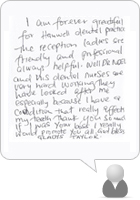 I am forever grateful
for Howell dental practice
the reception ladies are
friendly and professional
always helpful.
and his dental nurses are
very hard working. They
have looked after me
especially because I have a
condition that really effects
my teeth. Thank you so much
if it was your
promote you all, and